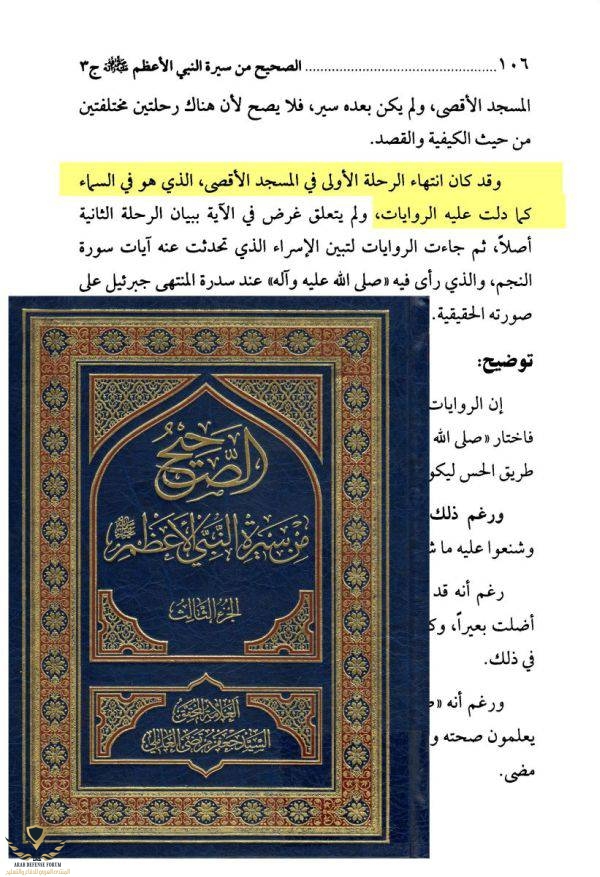 ١٠٦ ................................................ الصحيح من سيرة النبي الأعظم ﷺ ج٣
المسجد الأقصى، ولم يكن بعده سير، فلا يصح لأن هناك رحلتين مختلفتين
من حيث الكيفية والقصد.
وقد كان انتهاء الرحلة الأولى في المسجد الأقصى، الذي هو في السماء
كما دلت عليه الروايات، ولم يتعلق غرض في الآية ببيان الرحلة الثانية
أصلاً، ثم جاءت الروايات لتبين الإسراء الذي تحدثت عنه آيات سورة
النجم، والذي رأى فيه «صلى الله عليه وآله» عند سدرة المنتهى جبرئيل على
صورته الحقيقية.
توضيح:
إن الروايات
فاختار «صلى الله
طريق الحس ليكو
ورغم ذلك
وشنعوا عليه ما ش
رغم أنه قد
أضلت بعيراً، وك
في ذلك.
ورغم أنه «ص
يعلمون صحته و
مضى.
الصحيح
من سيرة النبي الأعظم ﷺ
الجزء الثالث
العلامة المحقق
السيد جعفر مرتضى العاملي
ARAB DEFENSE FORUM
المنتدى العربي للدفاع والتسليح